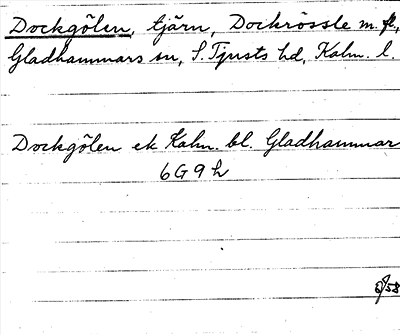 Dockgölen, tjärn, Dockrössle m. fl,
Gladhammars sn, S. Tjusts hd, Kalm. l.
Dockgölen ek Kalm. bl. Gladhammar
6G9h
/58